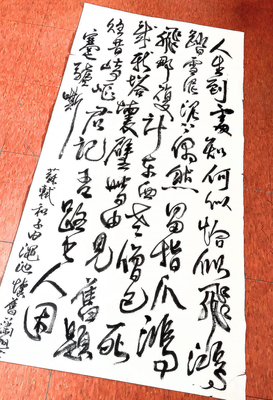 人生到處知何似恰似飛鴻
踏雪泥泥上偶然留指爪鴻
飛那復計東西老僧已死
成新塔壞壁無由見舊題
往昔崎嶇君記否路長人困
蹇驢嘶
蘇軾和子由澠池懷舊